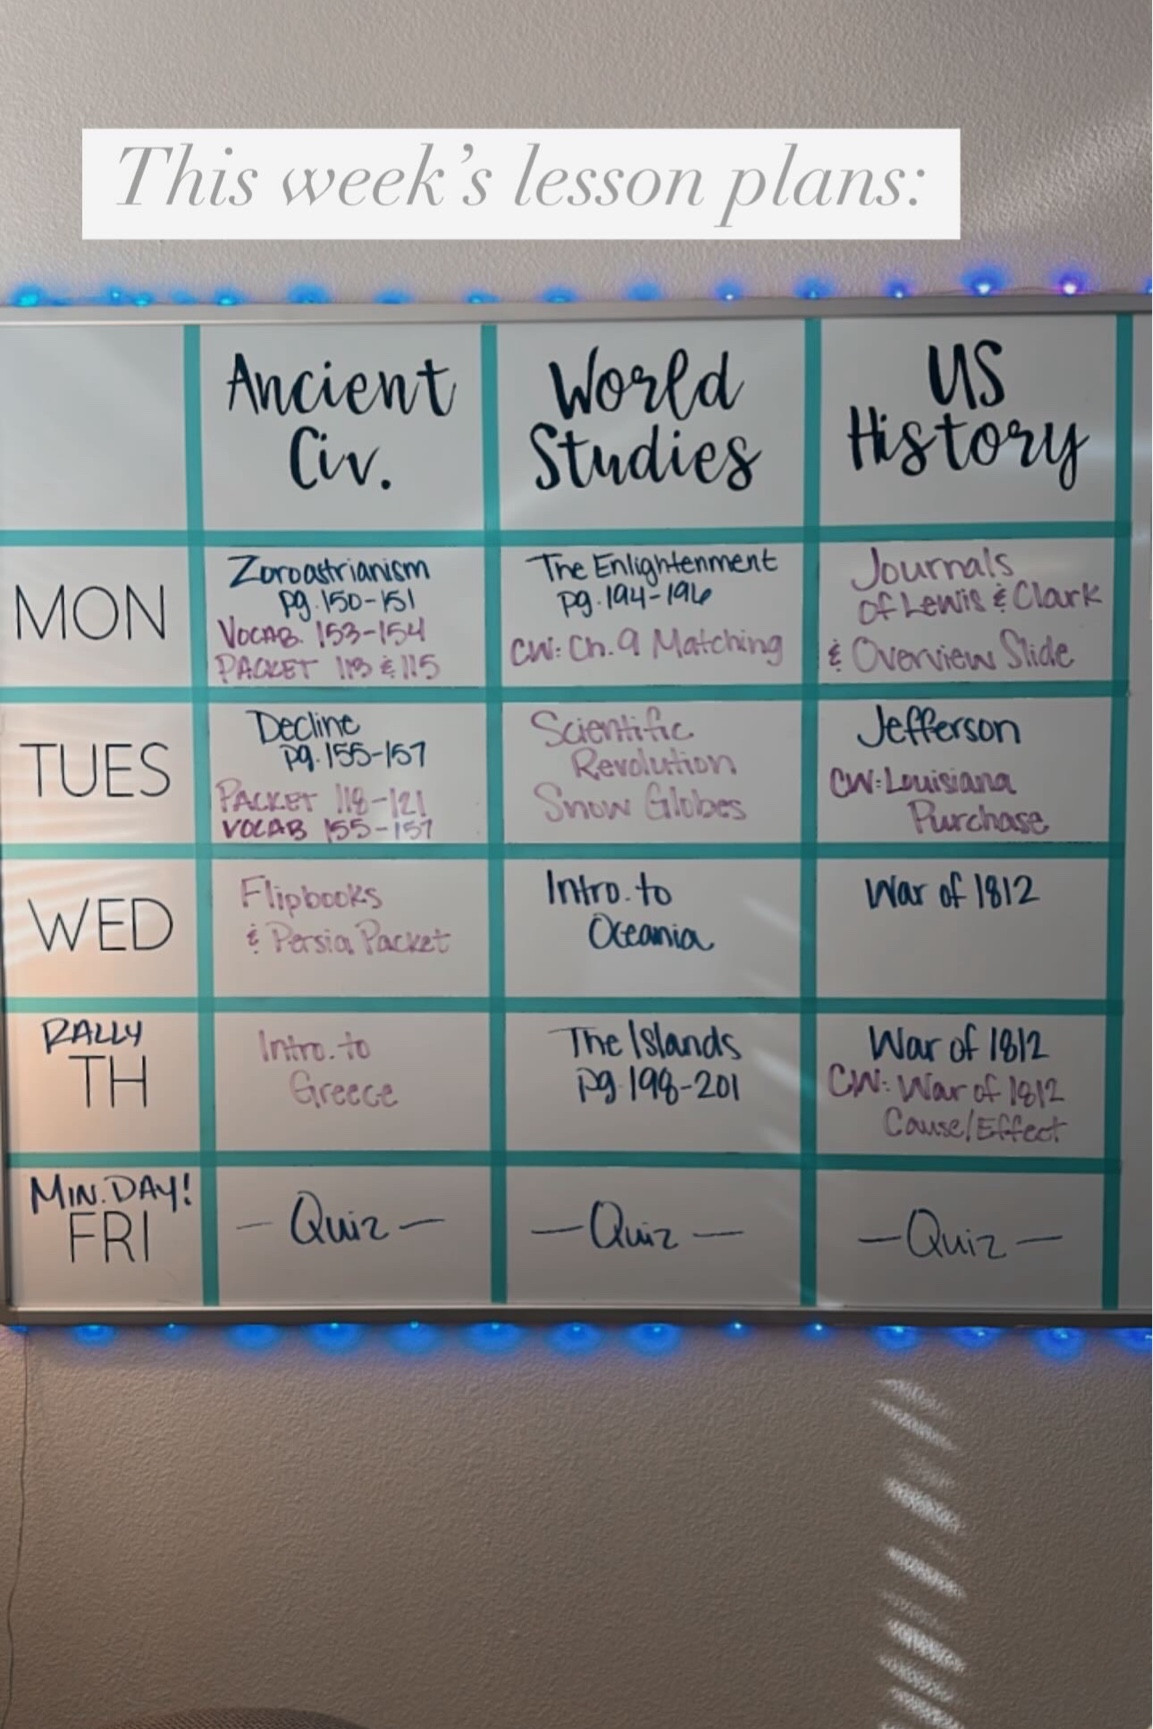 This week's lesson plans:
Ancient
Civ.
World
Studies
US
History
MON
Zoroastrianism
pg. 150-151
VOCAB. 153-154
PACKET 113 & 115
The Enlightenment
pg. 194-196
CW: Ch. 9 Matching
Journals
of Lewis & Clark
& Overview Slide
TUES
Decline
pg. 155-157
PACKET 118-121
VOCAB 155-157
Scientific
Revolution
Snow Globes
Jefferson
CW: Louisiana
Purchase
WED
Flipbooks
& Persia Packet
Intro. to
Oceania
War of 1812
RALLY
TH
Intro. to
Greece
The Islands
pg. 198-201
War of 1812
CW: War of 1812
Cause/Effect
MIN. DAY!
FRI
- Quiz -
- Quiz -
- Quiz -